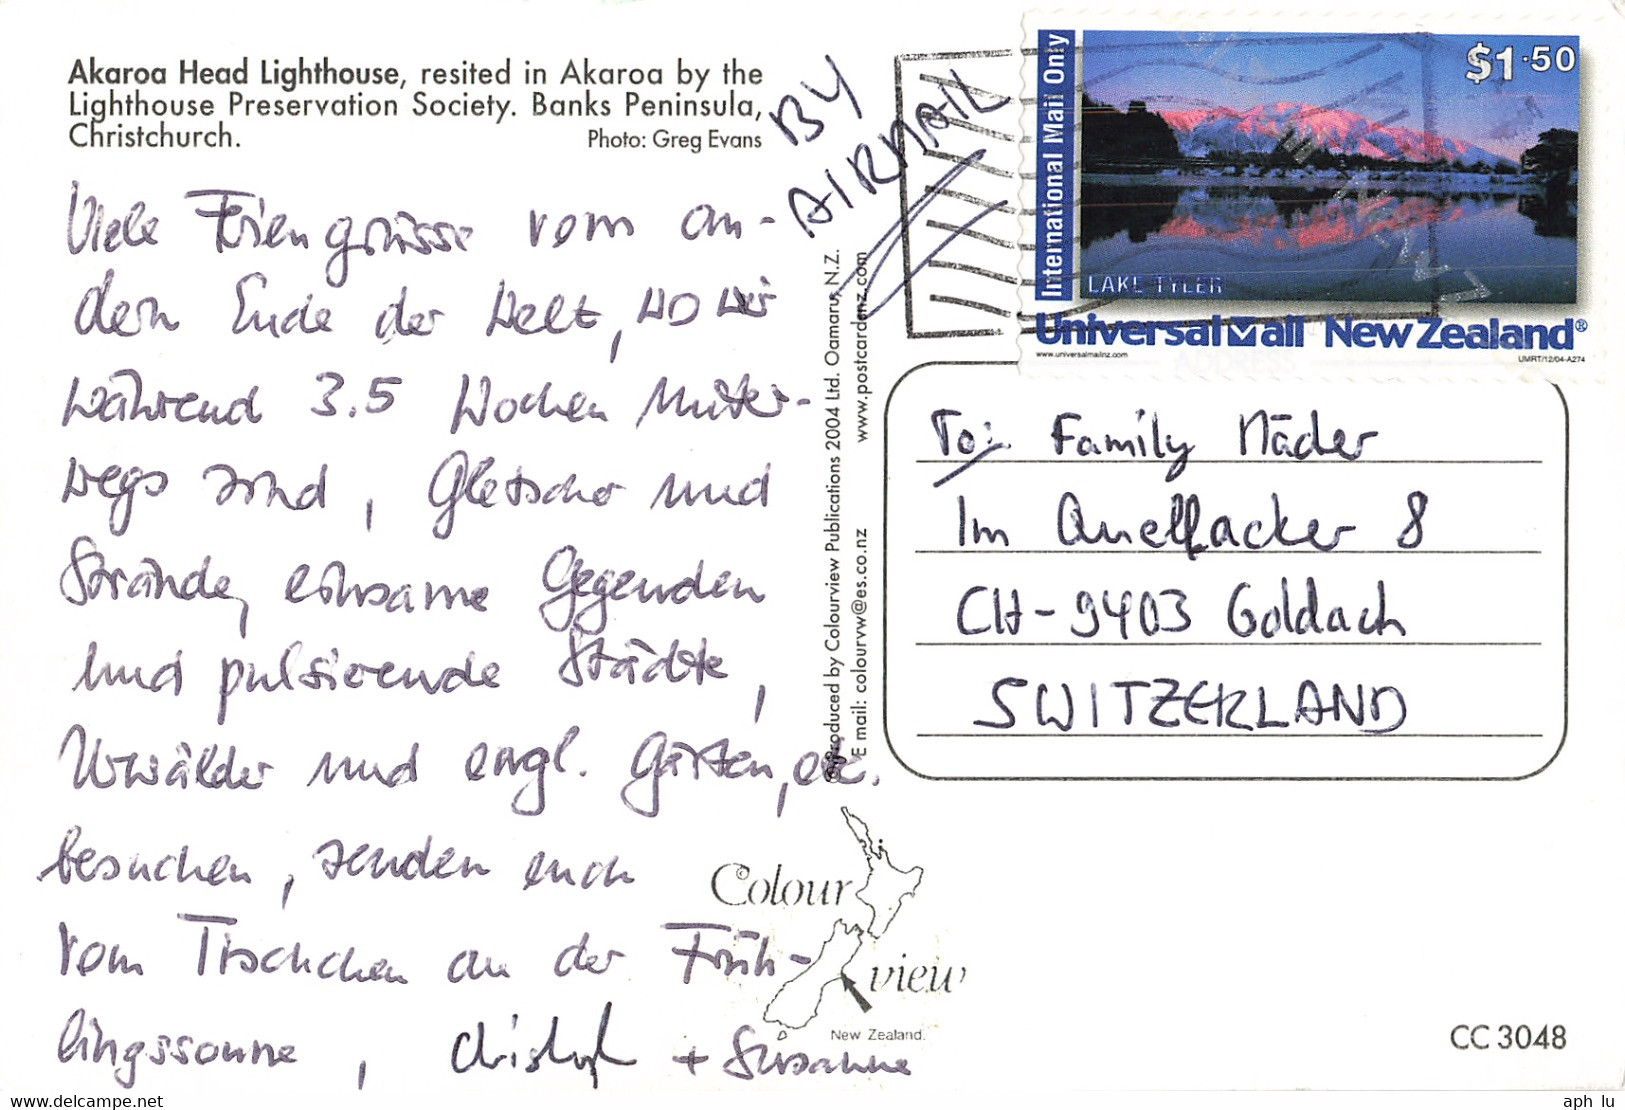 Akaroa Head Lighthouse, resited in Akaroa by the
Lighthouse Preservation Society. Banks Peninsula,
Christchurch.
Photo: Greg Evans
BY
AIRMAIL
Viele Feriengrüsse vom an-
dern Ende der Welt, wo wir
während 3.5 Wochen unter-
wegs sind, Gletscher und
Strände, einsame Gegenden
und pulsierende Städte,
Urwälder und engl. Gärten, etc.
besuchen, senden euch
vom Tischchen an der Früh-
lingssonne, Christoph + Susanne
International Mail Only
$1.50
LAKE TYLER
Universal Mail New Zealand®
www.universalmailnz.com
UMRT/12/04-A274
To: Family Mäder
Im Quellacker 8
CH-9403 Goldach
SWITZERLAND
©Produced by Colourview Publications 2004 Ltd. Oamaru, N.Z.
E mail: colourvw@es.co.nz www.postcardsnz.com
©Colour
view
New Zealand.
CC 3048
www.delcampe.net
aph_lu